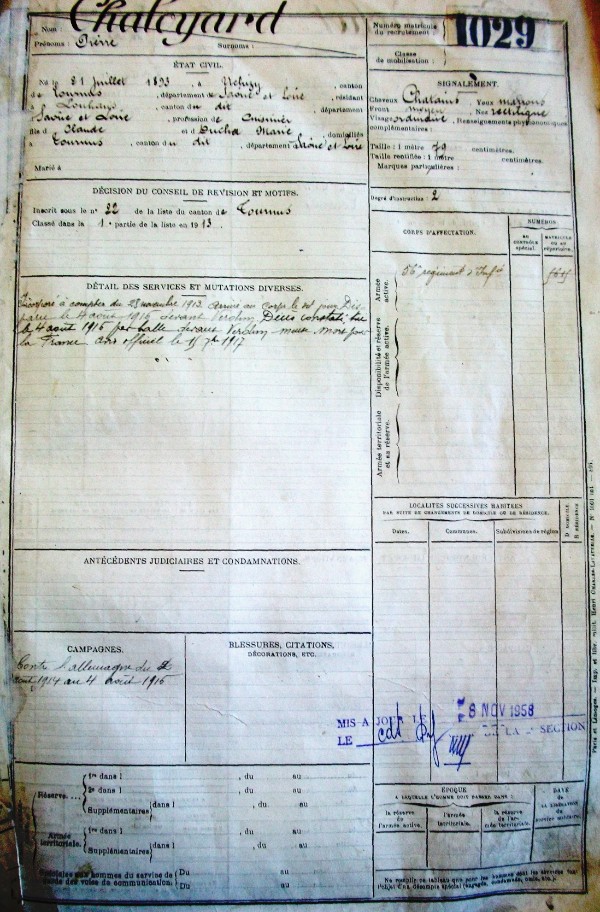 Nom: Chaleyard
Prénoms: Pierre Surnoms:
Numéro matricule du recrutement: 1029
Classe de mobilisation:
ÉTAT CIVIL.
Né le 31 juillet 1893, à , canton
de Tournus, département de Saône et Loire, résidant
à Louhans, canton du dit, département
Saône et Loire, profession de Cuisinier
fils de Claude et Ducha Marie, domiciliés
à Tournus, canton du dit, département Saône et Loire
Marié à
SIGNALEMENT.
Cheveux Chatains Yeux marrons
Front moyen, Nez rectiligne
Visage, Renseignements physionomiques
complémentaires:
Taille: 1 mètre 79 centimètres.
Taille rectifiée: 1 mètre centimètres.
Marques particulières:
Degré d'instruction: 2
DÉCISION DU CONSEIL DE REVISION ET MOTIFS.
Inscrit sous le n° 22 de la liste du canton de Tournus
Classé dans la 1e partie de la liste en 1913.
DÉTAIL DES SERVICES ET MUTATIONS DIVERSES.
Incorporé à compter du novembre 1913 arrivé au corps le dit jour Dis-
paru le 4 août 1916 devant Verdun, Décès constaté, tué
le 4 août 1916 par balle devant Verdun meuse Mort pour
la France avis officiel le 1917
CORPS D'AFFECTATION.
NUMÉROS
au contrôle spécial.
matricule ou au répertoire.
Armée active.
56e régiment d'Infie
Disponibilité et réserve de l'armée active.
Armée territoriale et sa réserve.
LOCALITÉS SUCCESSIVES HABITÉES
PAR SUITE DE CHANGEMENTS DE DOMICILE OU DE RÉSIDENCE.
Dates. Communes. Subdivisions de région
D DOMICILE
R RÉSIDENCE
ANTÉCÉDENTS JUDICIAIRES ET CONDAMNATIONS.
CAMPAGNES.
Contre l'allemagne du 2
août 1914 au 4 août 1916
BLESSURES, CITATIONS,
DÉCORATIONS, ETC.
MIS A JOUR LE 28 NOV 1958
LE DE LA SECTION
Réserve.... 1re dans l , du au
2e dans l , du au
Supplémentaires dans l , du au
Armée territoriale. 1re dans l , du au
Supplémentaires dans l , du au
Spéciales aux hommes du service de
garde des voies de communication. Du au
Du au
ÉPOQUE
A LAQUELLE L'HOMME DOIT PASSER DANS:
la réserve de l'armée active.
l'armée territoriale.
la réserve de l'armée territoriale.
DATE de LA LIBÉRATION du service militaire.
Ne remplir ce tableau que pour les hommes dont les services font
l'objet d'un décompte spécial (engagés, condamnés, omis, etc.).